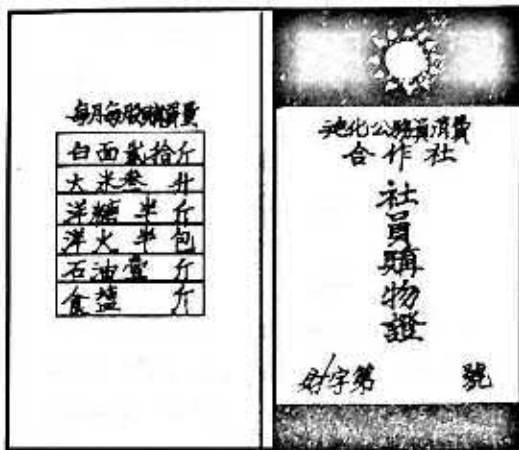 每月每股購買費
白面貳拾斤
大米叁 升
洋糖 半 斤
洋火 半 包
石油壹 斤
食塩 斤
公務員消費
合作社
社員購物證
字第 號